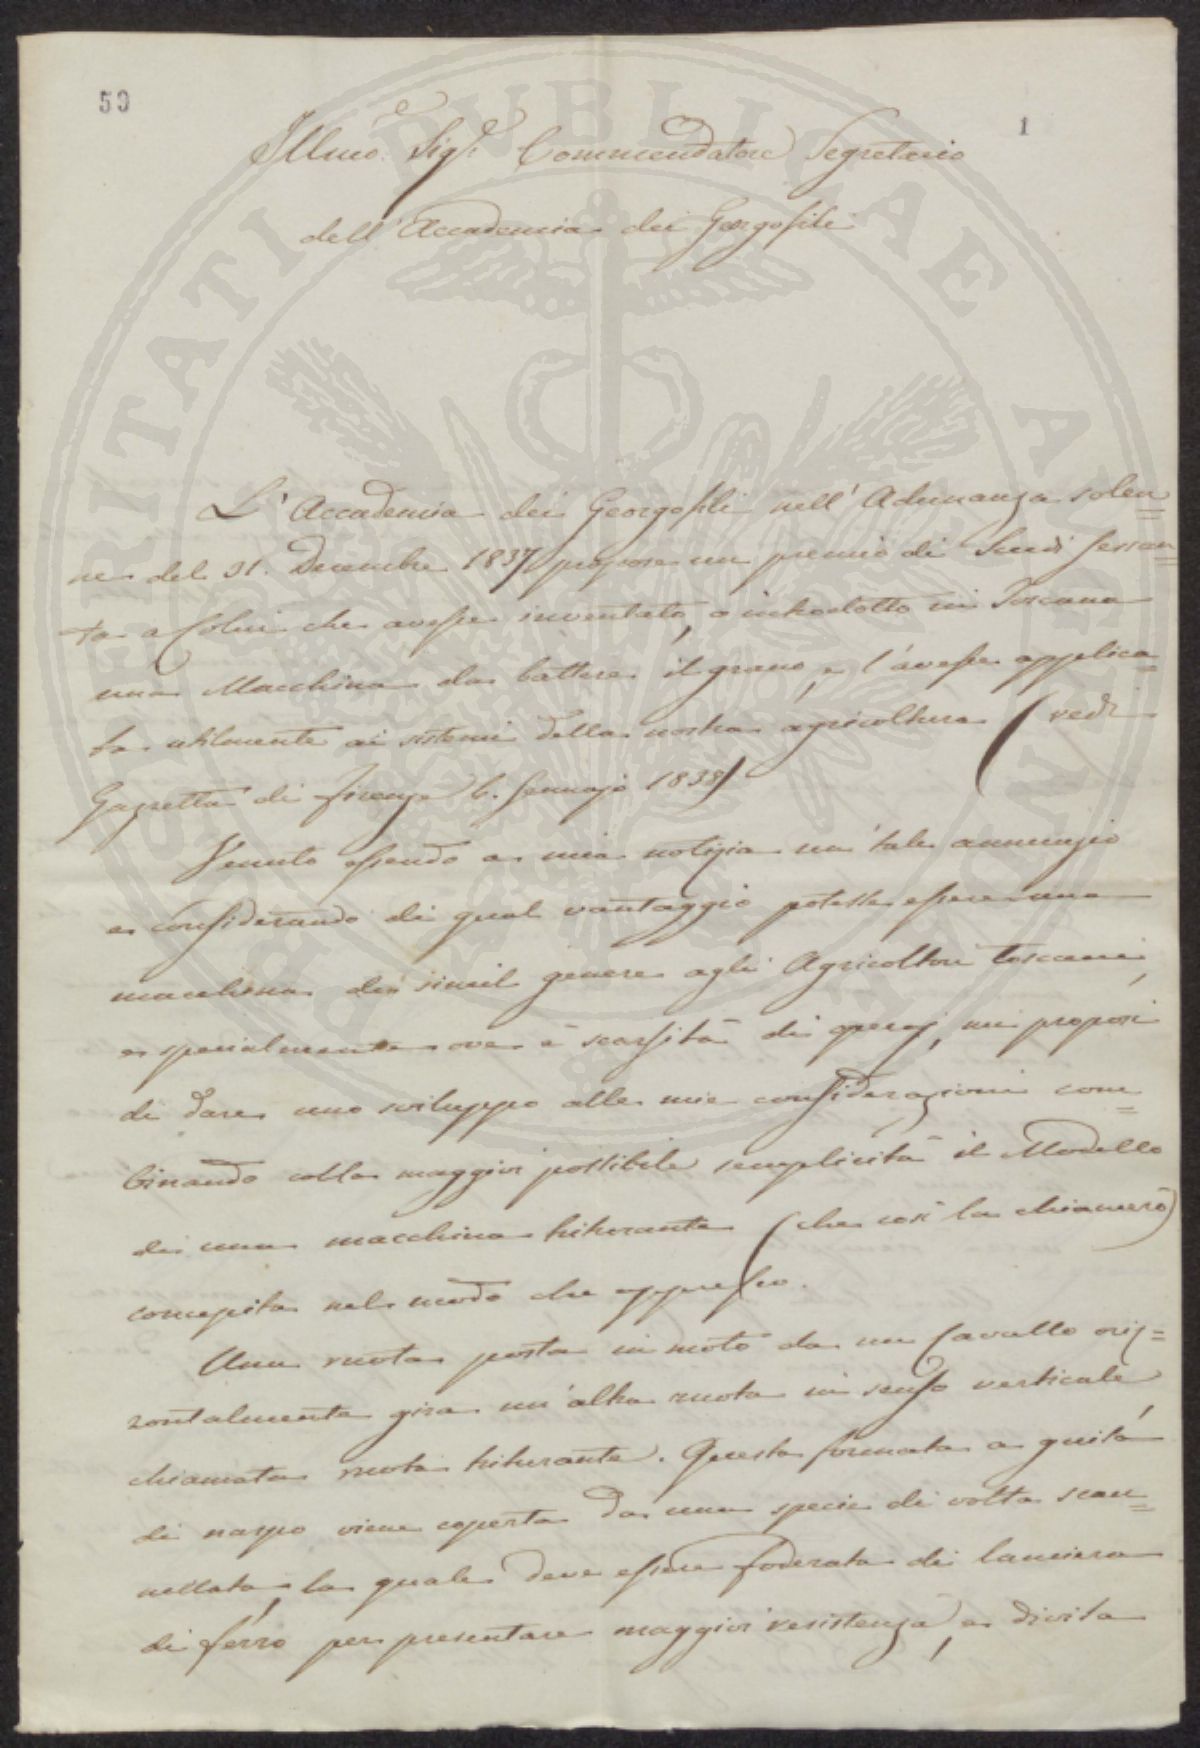 59
1
Illmo. Sigre. Commendatore Segretario
dell'Accademia dei Georgofili
L'Accademia dei Georgofili nell'Adunanza solen=
ne del 31. Decembre 1837 propose un premio di Scudi sessan=
ta a Colui che avesse inventato, o introdotto in Toscana
una Macchina da battere il grano, e l'avesse applica=
ta utilmente ai sistemi della nostra agricoltura (vedi
Gazzetta di Firenze 6. Gennajo 1838)
Venuto essendo a mia notizia un tale annunzio
e considerando di qual vantaggio potesse essere una
macchina di simil genere agli Agricoltori Toscani,
e specialmente ove è scarsità di operaj, mi proposi
di dare uno sviluppo alle mie considerazioni com=
binando colla maggior possibile semplicità il Modello
di una macchina triturante (che così la chiamerò)
concepita nel modo che appresso.
Una ruota posta in moto da un Cavallo oriz=
zontalmente gira un'altra ruota in senso verticale,
chiamata ruota triturante. Questa formata a guisa
di naspo viene coperta da una specie di volta scan=
nellata, la quale deve essere foderata di lamiera
di ferro per presentare maggior resistenza, e divisa
PROSPERITATI PUBLICAE AUGENDAE